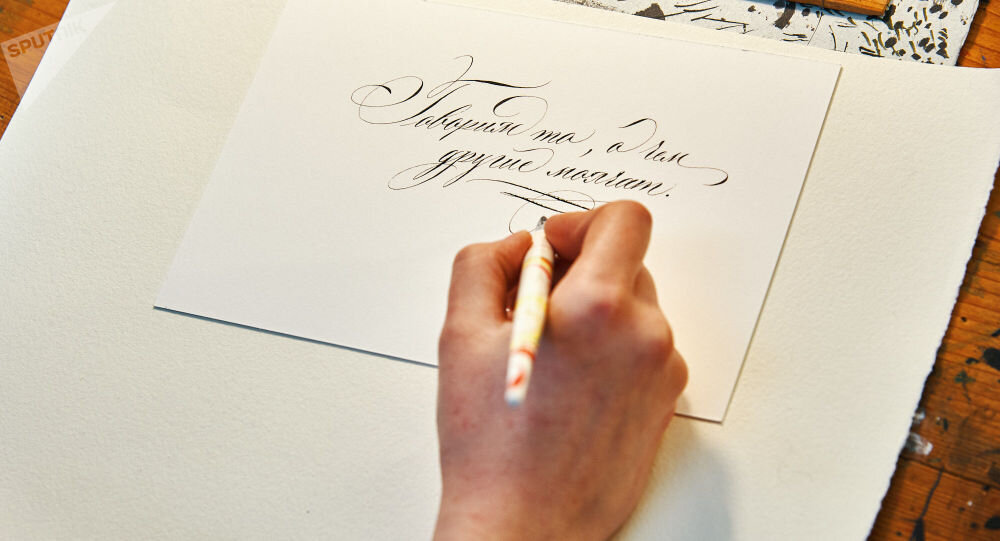 SPUTNIK
Говорим то, о чем
другие молчат.